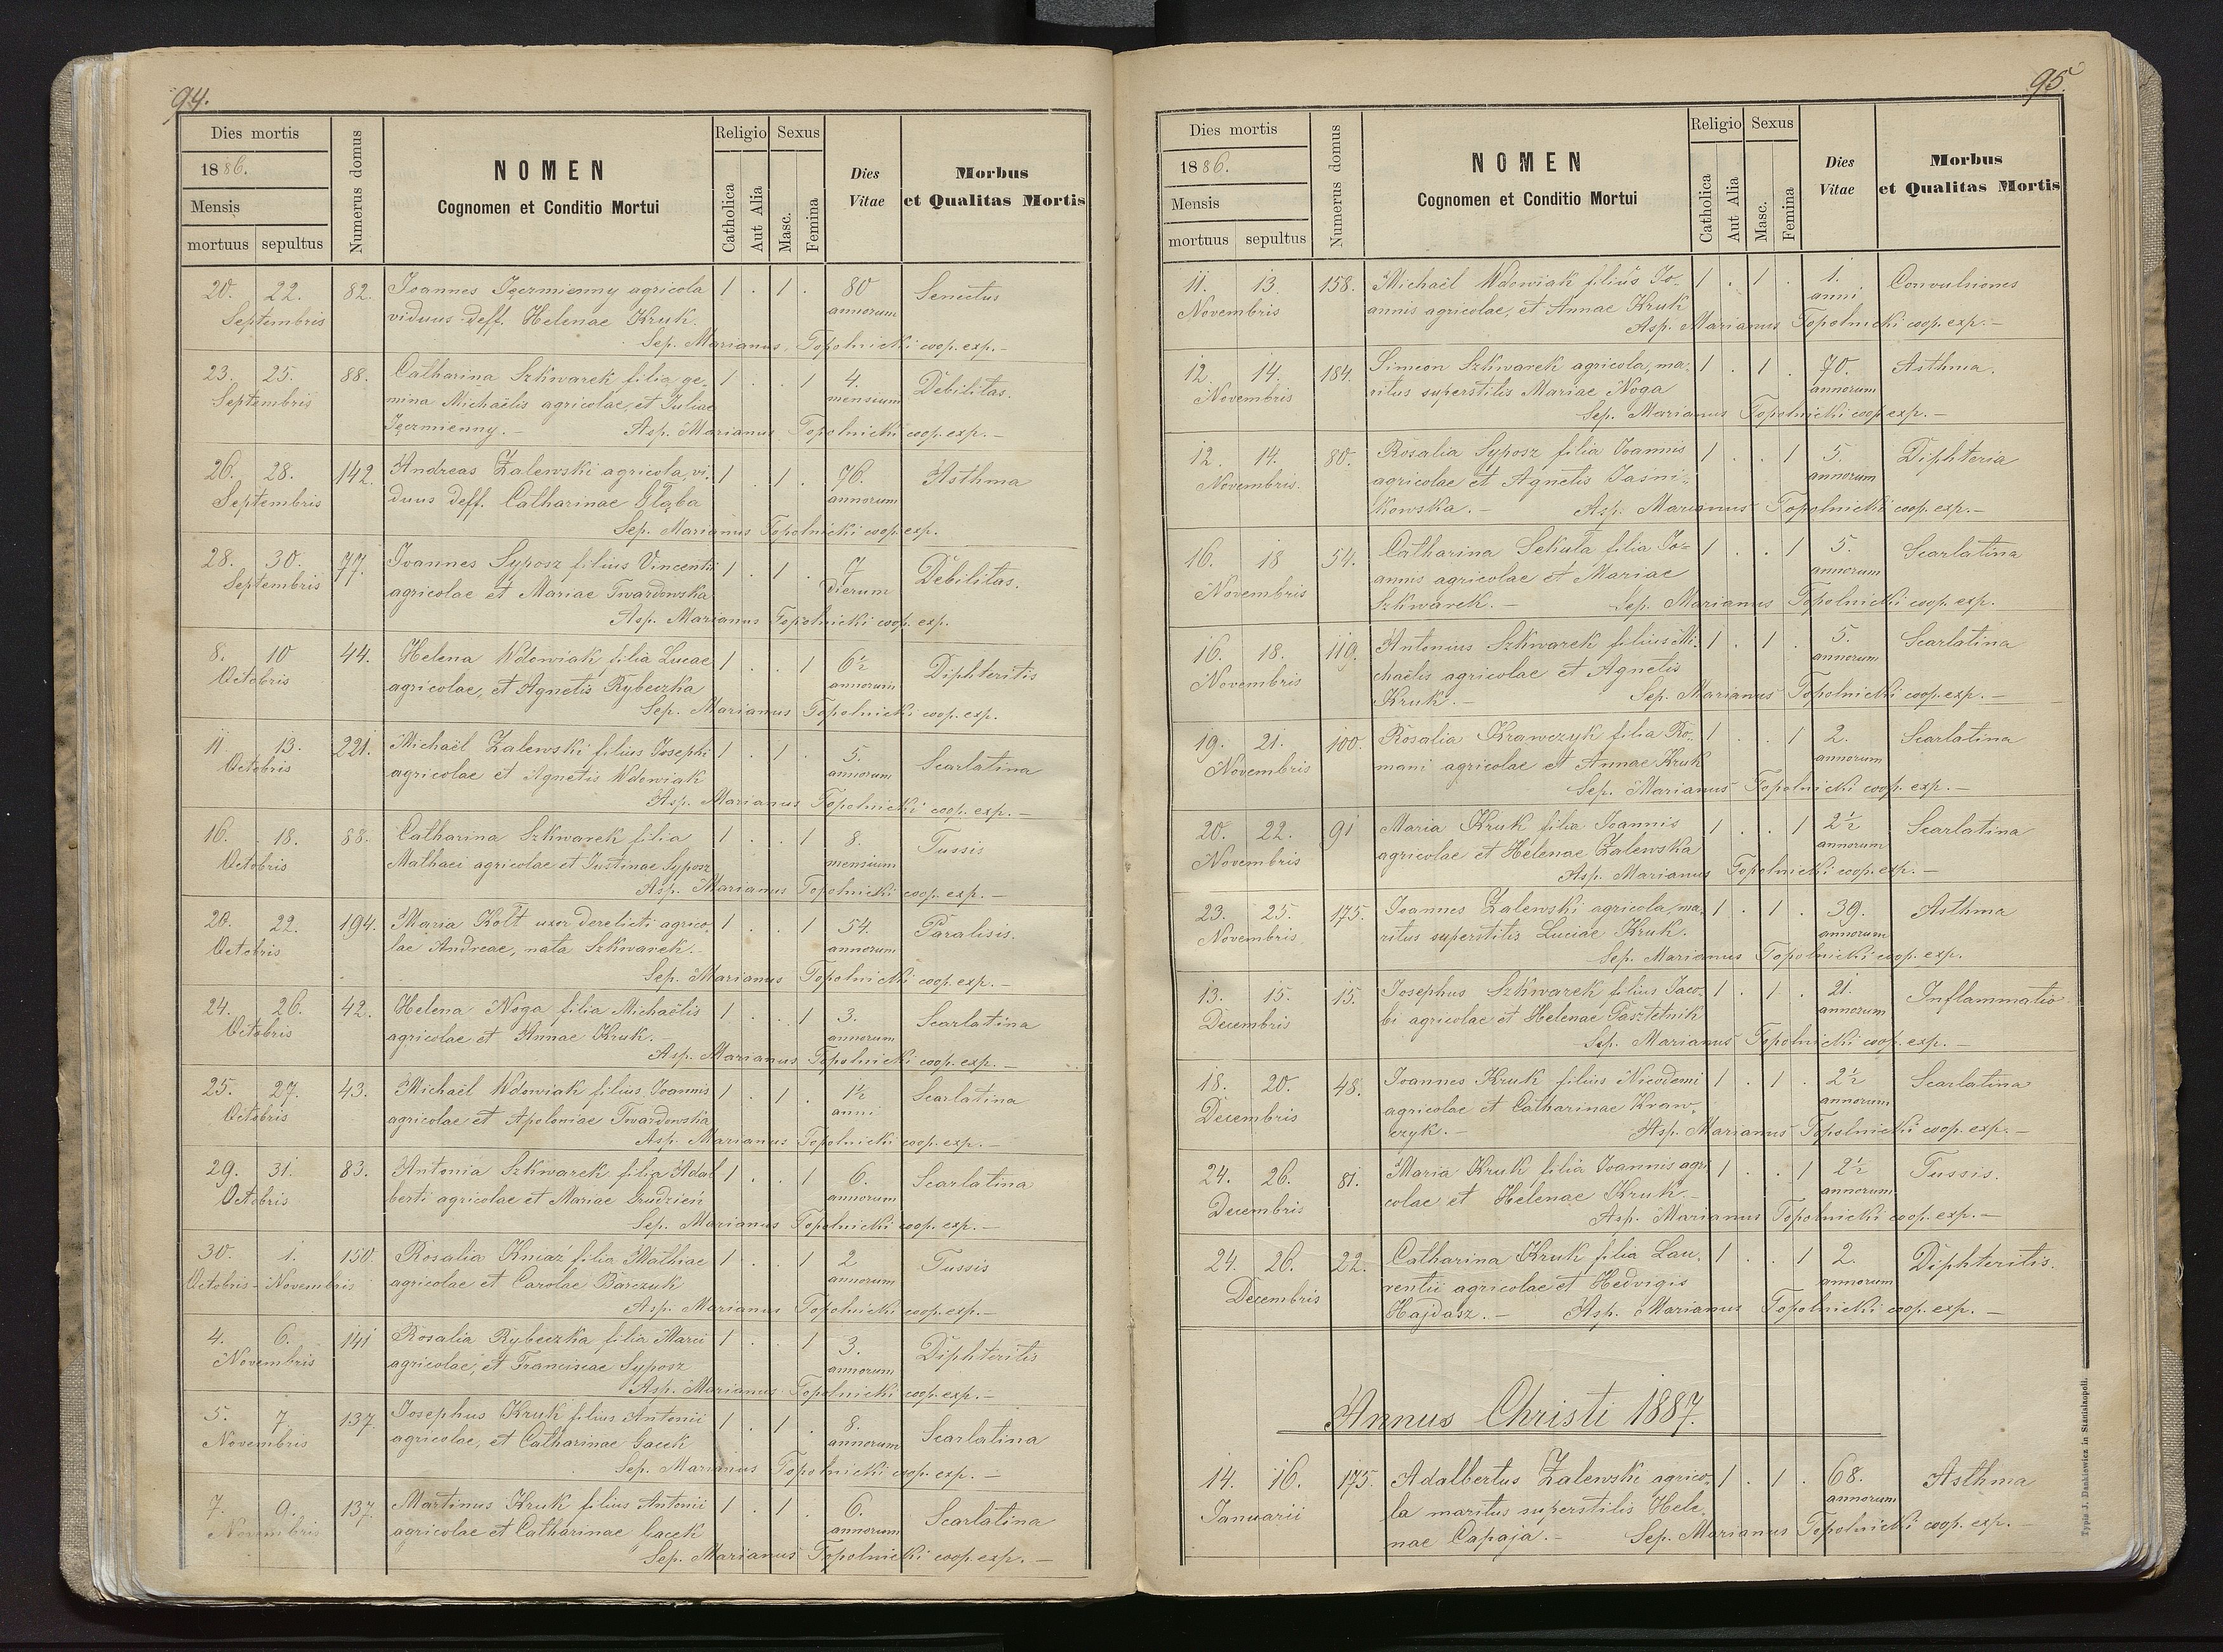 94.
Dies mortis
1886.
Mensis
mortuus sepultus
Numerus domus
NOMEN
Cognomen et Conditio Mortui
Religio
Catholica
Aut Alia
Sexus
Masc.
Femina
Dies
Vitae
Morbus
et Qualitas Mortis
20. 22. 82. Joannes Jęczmienny agricola 1 . 1 . 80 Senectus
Septembris viduus deff. Helenae Kruk. annorum
Sep. Marianus Topolnicki coop. exp. –
23. 25. 88. Catharina Szkwarek filia ge- 1 . . 1 4. Debilitas.
Septembris mina Michaëlis agricolae, et Juliae mensium
Jęczmienny. – Asp. Marianus Topolnicki coop. exp. –
26. 28. 142. Andreas Zalewski agricola, vi- 1 . 1 . 76. Asthma
Septembris duus deff. Catharinae Głąba annorum
Sep. Marianus Topolnicki coop. exp.
28. 30. 77. Joannes Syposz filius Vincentii 1 . 1 . 7 Debilitas.
Septembris agricolae et Mariae Twardowska dierum
Asp. Marianus Topolnicki coop. exp.
8. 10 44. Helena Wdowiak filia Lucae 1 . . 1 6½ Diphteritis
Octobris agricolae, et Agnetis Rybeczka annorum
Sep. Marianus Topolnicki coop. exp.
11 13. 221. Michaël Zalewski filius Josephi 1 . 1 . 5. Scarlatina
Octobris agricolae et Agnetis Wdowiak annorum
Asp. Marianus Topolnicki coop. exp. –
16. 18. 88. Catharina Szkwarek filia 1 . . 1 8. Tussis
Octobris Mathaei agricolae et Justinae Syposz mensium
Asp. Marianus Topolnicki coop. exp. –
20. 22. 194. Maria Kołt uxor derelicti agrico- 1 . . 1 54. Paralisis.
Octobris lae Andreae, nata Szkwarek. – annorum
Sep. Marianus Topolnicki coop. exp. –
24. 26. 42. Helena Noga filia Michaëlis 1 . . 1 3. Scarlatina
Octobris agricolae et Annae Kruk. annorum
Asp. Marianus Topolnicki coop. exp. –
25. 27. 43. Michaël Wdowiak filius Joannis 1 . 1 . 1½ Scarlatina
Octobris agricolae et Apoloniae Twardowska anni
Asp. Marianus Topolnicki coop. exp. –
29. 31. 83. Antonia Szkwarek filia Adal 1 . . 1 6. Scarlatina
Octobris berti agricolae et Mariae Grudzień annorum
Sep. Marianus Topolnicki coop. exp. –
30. 1. 150 Rosalia Kmaź filia Mathiae 1 . . 1 2 Tussis
Octobris – Novembris agricolae et Carolae Barczuk annorum
Asp. Marianus Topolnicki coop. exp. –
4. 6. 141 Rosalia Rybeczka filia Marci 1 . . 1 3. Diphteritis
Novembris agricolae, et Franciscae Syposz annorum
Asp. Marianus Topolnicki coop. exp. –
5. 7. 137 Josephus Kruk filius Antonii 1 . 1 . 8. Scarlatina
Novembris agricolae, et Catharinae Gacek annorum
Sep. Marianus Topolnicki coop. exp. –
7. 9. 137. Martinus Kruk filius Antonii 1 . 1 . 6. Scarlatina
Novembris agricolae et Catharinae Gacek annorum
Sep. Marianus Topolnicki coop. exp. –
95.
Dies mortis
1886.
Mensis
mortuus sepultus
Numerus domus
NOMEN
Cognomen et Conditio Mortui
Religio
Catholica
Aut Alia
Sexus
Masc.
Femina
Dies
Vitae
Morbus
et Qualitas Mortis
11. 13. 158. Michaël Wdowiak filius Jo- 1 . 1 . 1. Convulsiones
Novembris annis agricolae, et Annae Kruk anni
Asp. Marianus Topolnicki coop. exp. –
12. 14. 184. Simeon Szkwarek agricola, ma- 1 . 1 . 70. Asthma.
Novembris ritus superstitis Mariae Noga annorum
Sep. Marianus Topolnicki coop. exp. –
12. 14. 80. Rosalia Syposz filia Joannis 1 . . 1 5. Diphteria
Novembris. agricolae et Agnetis Jaśni- annorum
kowska. – Asp. Marianus Topolnicki coop. exp. –
16. 18 54. Catharina Sekuła filia Jo- 1 . . 1 5. Scarlatina
Novembris annis agricolae et Mariae annorum
Szkwarek. – Sep. Marianus Topolnicki coop. exp.
16. 18. 119. Antonius Szkwarek filius Mi- 1 . 1 . 5. Scarlatina
Novembris chaëlis agricolae et Agnetis annorum
Kruk. – Sep. Marianus Topolnicki coop. exp. –
19. 21. 100. Rosalia Krawczyk filia Ro- 1 . . 1 2. Scarlatina
Novembris mani agricolae et Annae Kruk annorum
Sep. Marianus Topolnicki coop. exp. –
20. 22. 91 Maria Kruk filia Joannis 1 . . 1 2½ Scarlatina
Novembris agricolae et Helenae Zalewska annorum
Asp. Marianus Topolnicki coop. exp. –
23. 25. 175. Joannes Zalewski agricola, ma- 1 . 1 . 39. Asthma
Novembris ritus superstitis Luciae Kruk. annorum
Sep. Marianus Topolnicki coop. exp.
13. 15. 15. Josephus Szkwarek filius Jaco- 1 . 1 . 21. Inflammatio
Decembris bi agricolae et Helenae Pasztetnik annorum
Sep. Marianus Topolnicki coop. exp. –
18. 20. 48. Joannes Kruk filius Nicodemi 1 . 1 . 2½ Scarlatina
Decembris agricolae et Catharinae Kraw- annorum
czyk. – Asp. Marianus Topolnicki coop. exp. –
24. 26. 81. Maria Kruk filia Joannis agri 1 . . 1 2½ Tussis.
Decembris colae et Helenae Kruk. – annorum
Asp. Marianus Topolnicki coop. exp. –
24. 26. 22. Catharina Kruk filia Lau- 1 . . 1 2. Diphteritis.
Decembris rentii agricolae et Hedvigis annorum
Hajdasz. – Asp. Marianus Topolnicki coop. exp. –
Annus Christi 1887.
14. 16. 175. Adalbertus Zalewski agrico- 1 . 1 . 68. Asthma
Januarii la maritus superstitis Hele- annorum
nae Capaja. – Sep. Marianus Topolnicki coop. exp. –
Typis J. Dankiewicz in Stanislaopoli.